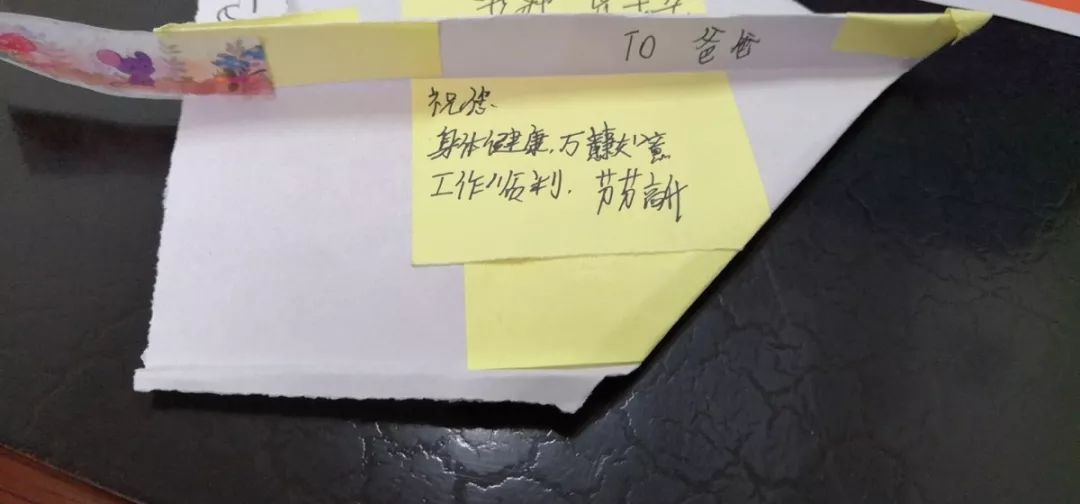 TO 爸爸
祝您
身体健康,万事如意
工作顺利,芳芳高升